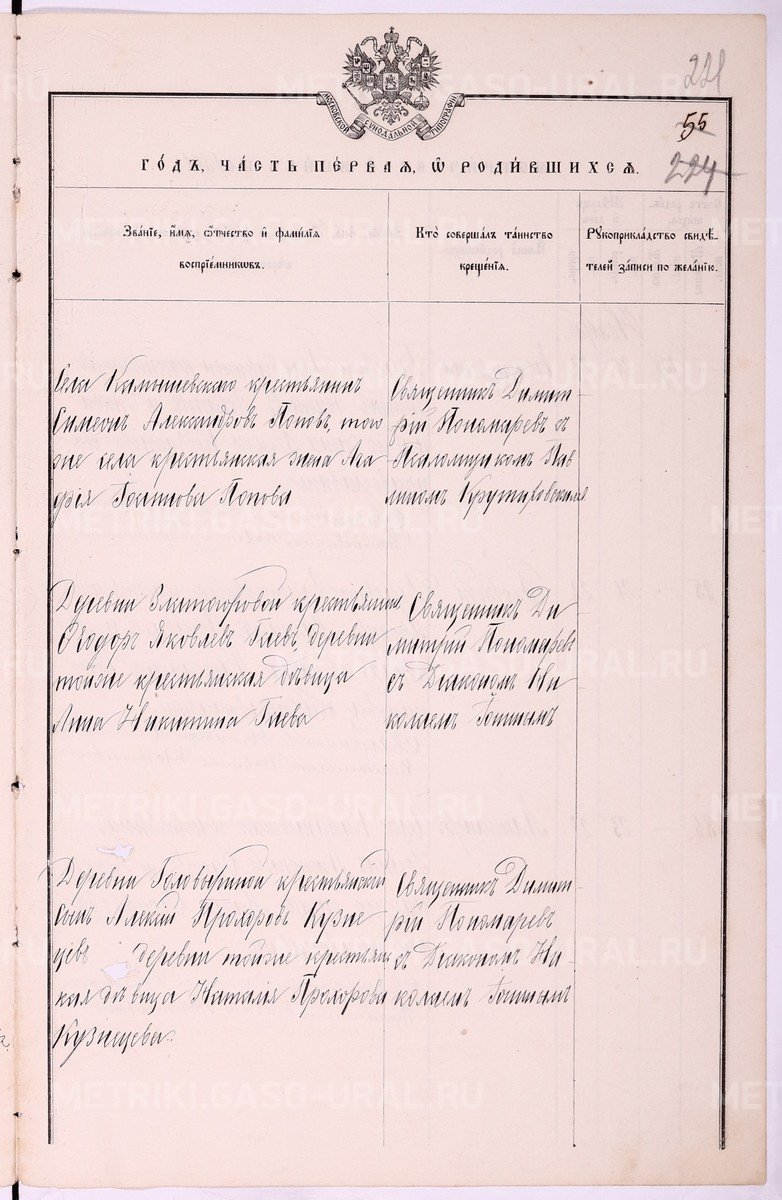 221
55
224
МОСКОВСКОЙ СѴНОДАЛЬНОЙ ТИПОГРАФІИ
ГО́ДЪ, ЧА́СТЬ ПЕ́РВАЯ, Ѡ҆ РОДИ́ВШИХСѦ.
Зва́нїе, и҆́мѧ, ѻ҆́тчество и҆ фами́лїѧ
воспрїе́мникѡвъ.
Кто̀ соверша́лъ та́инство
креще́нїѧ.
Рꙋкоприкла́дство свидѣ́-
телей за́писи по жела́нїю.
Села Камышевскаго крестьянинъ
Симеонъ Александровъ Поповъ, того
же села крестьянская жена Ага
фія Іоаннова Попова
Священникъ Димит-
рій Пономаревъ съ
Псаломщикомъ Пав
линомъ Крутиховскимъ
Деревни Златогоровой крестьянинъ
Ѳеодоръ Яковлевъ Гаевъ, деревни
тойже крестьянская дѣвица
Анна Никитина Гаева
Священникъ Ди-
митрій Пономаревъ
съ Діакономъ Ни
колаемъ
Деревни Головыриной крестьянскій
сынъ Алексій Прохоровъ Кузне
цевъ деревни тойже крестьянс
кая дѣвица Наталія Прохорова
Кузнецева.
Священникъ Димит
рій Пономаревъ
съ Діакономъ Ни-
колаемъ
METRIKI.GASO-URAL.RU